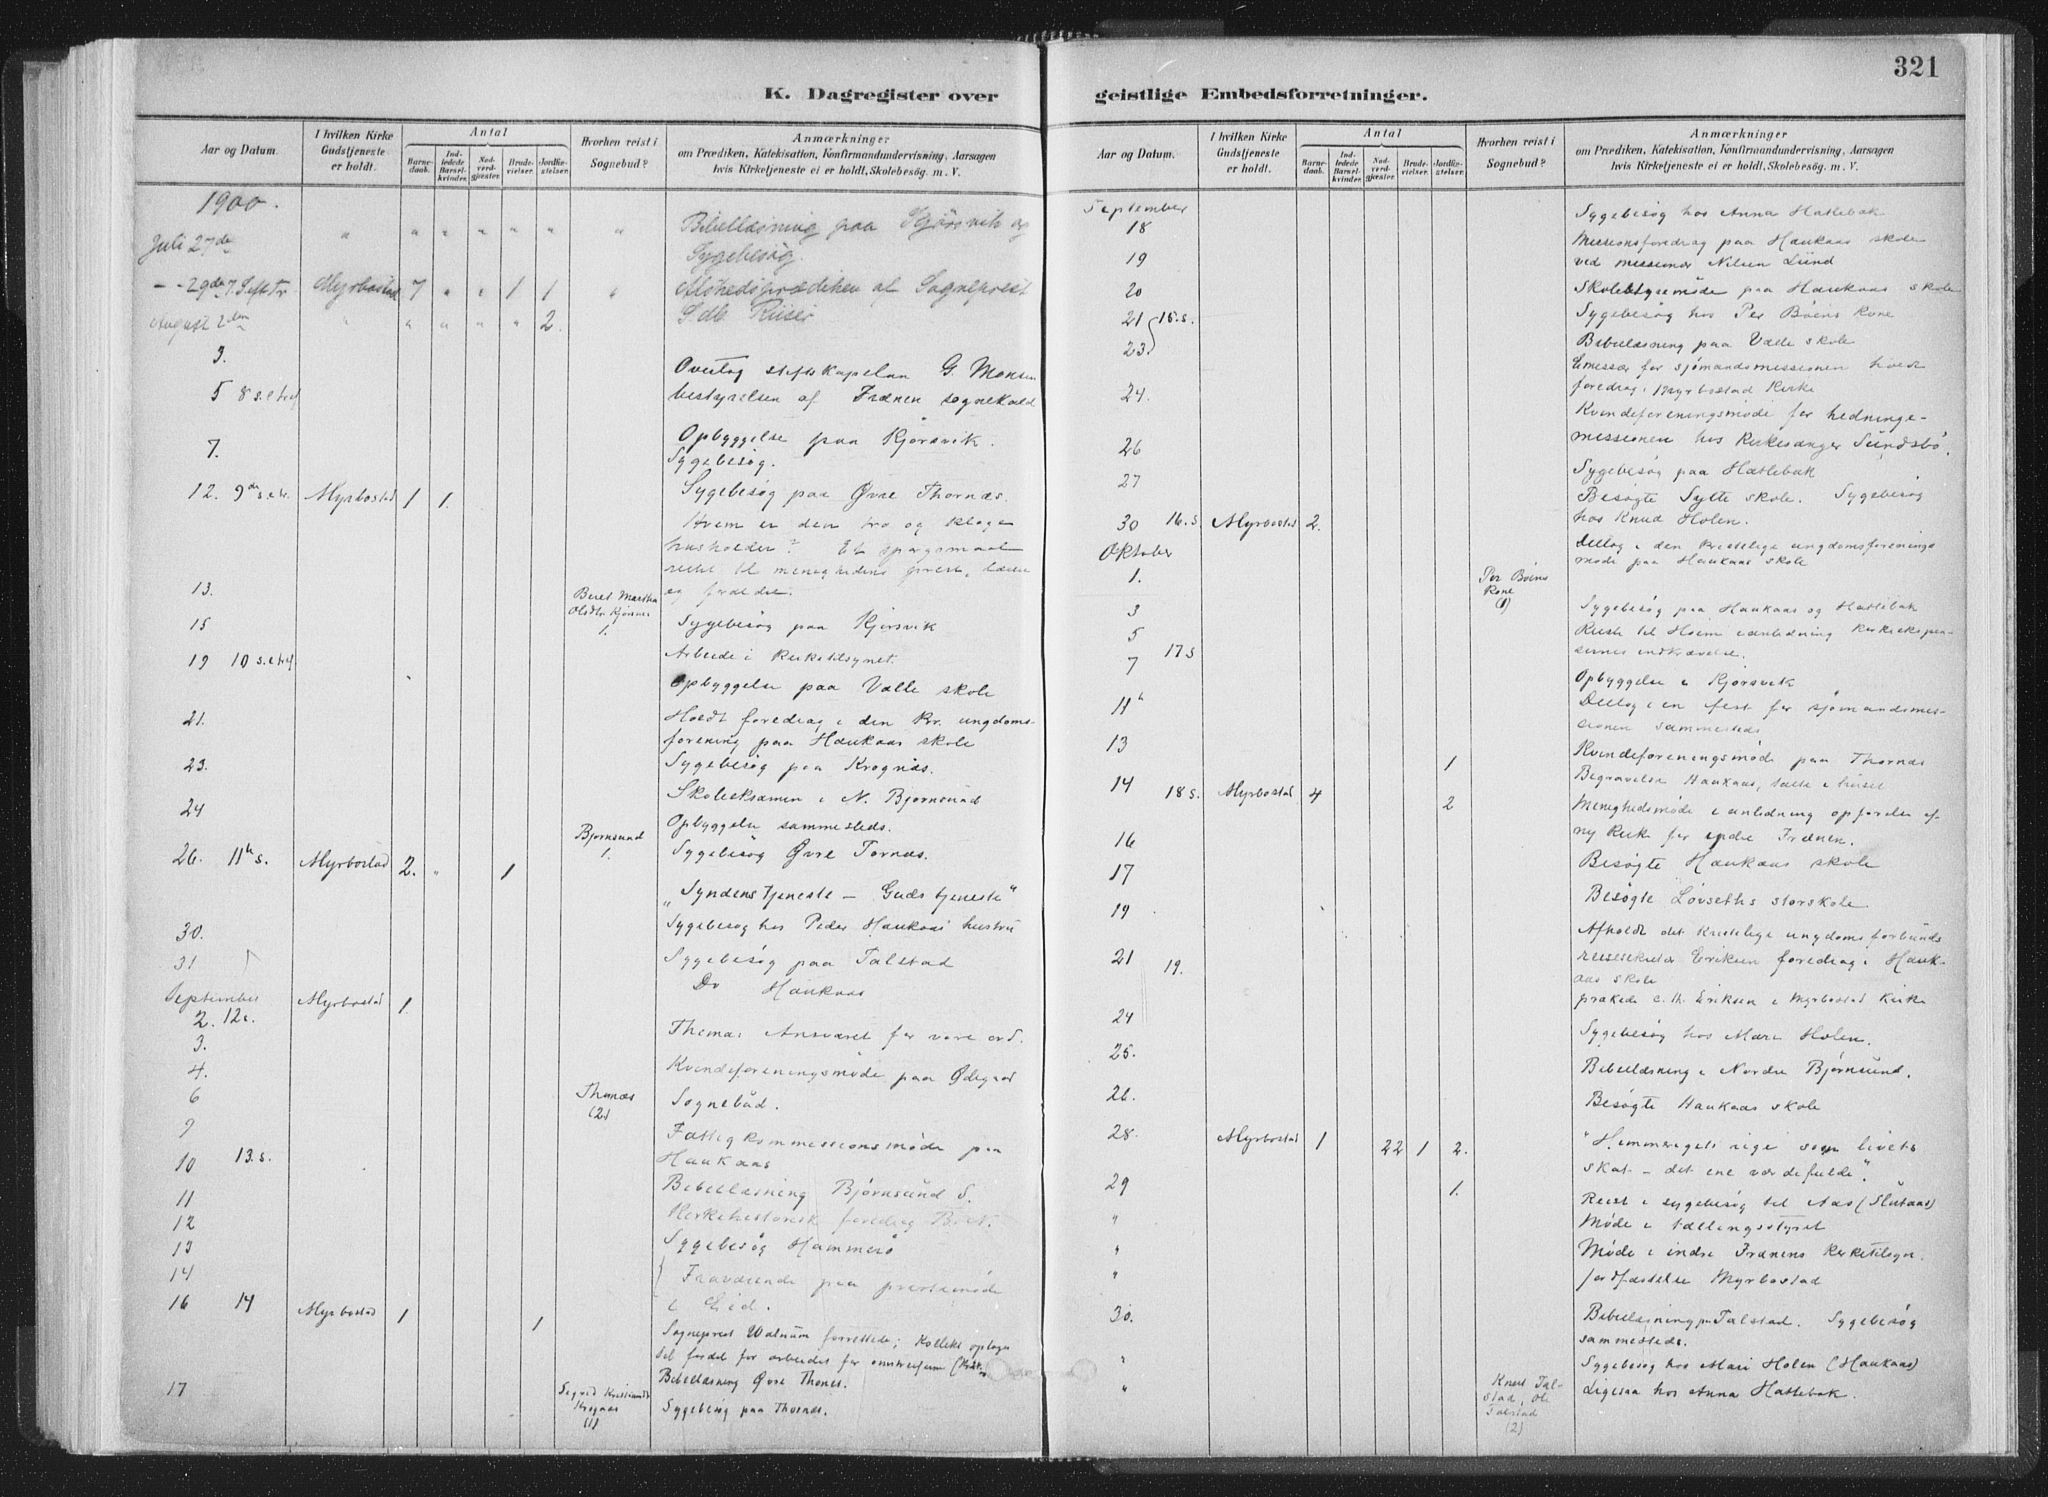 K. Dagregister over
Aar og Datum.
I hvilken Kirke Gudstjeneste er holdt.
Antal
Barnedaab.
Indledede Barselkvinder.
Nadverdgjæster.
Brudevielser.
Jordfæstelser.
Hvorhen reist i Sognebud?
Anmærkninger
om Prædiken, Katekisation, Konfirmandundervisning, Aarsagen
hvis Kirketjeneste ei er holdt, Skolebesøg m. V.
1900.
Juli 27de " " " " " " " Bibellæsning paa Kjørsvik og
Sygebesøg.
- - 29de 7. S. eft Tr. Myrbostad 7 " " 1 1 " Afskedsprædiken af Sogneprest
August 2den " " " " " 2.
3.
Overtog stiftskapelan G. Monsen
5 8 s. e. tref bestyrelsen af Frænen sognekald
7. Opbyggelse paa Kjørsvik.
Sygebesøg.
12. 9de s. e. tr. Myrbostad 1 1. Sygebesøg paa Øvre Thornæs.
Hvem er den tro og kloge
husholder? Et spørgsmaal
rettet til menighedens prest, lærer
13. Beret Martha og forældre.
15 Olsdtr Kjørsnes 1. Sygebesøg paa Kjørsvik
19 10 s. e. tref. Arbeide i Kirketilsynet.
Opbyggelse paa Valle skole
21. Holdt foredrag i den Kr. ungdoms-
forening paa Haukaas skole
23. Sygebesøg paa Krognæs.
24 Skoleeksamen i N. Bjørnsund
Bjørnsund 1. Opbyggelse sammesteds.
26. 11te s. Myrbostad 2. " 1 Sygebesøg Øvre Tornæs.
„Syndens tjeneste – Guds tjeneste“
30. Sygebesøg hos Peder Haukaas hustru
31 Sygebesøg paa Talstad
September Myrbostad 1. Do Haukaas
2. 12te.
3. Thema: Ansvaret for vore ord.
4. Kvindeforeningsmøde paa Ødegaard
6 Thornæs (2) Sognebud.
9 Fattigkommissionsmøde paa
10 13. s. Haukaas
11 Bibellæsning Bjørnsund S.
12 Kirkehistorisk foredrag B. N.
13 Sygebesøg Hammerø
14 Fraværende paa prestemøde
16 14 Myrbostad 1 1 i Eid.
Sogneprest Walnum forrettede; Kollekt optoges
til fordel for arbeidet for
17 Sigrid Kristians Krognæs (1) Bibellæsning Øvre Thornes.
Sygebesøg paa Thornæs.
321
geistlige Embedsforretninger.
Aar og Datum.
I hvilken Kirke Gudstjeneste er holdt.
Antal
Barnedaab.
Indledede Barselkvinder.
Nadverdgjæster.
Brudevielser.
Jordfæstelser.
Hvorhen reist i Sognebud?
Anmærkninger
om Prædiken, Katekisation, Konfirmandundervisning, Aarsagen
hvis Kirketjeneste ei er holdt, Skolebesøg m. V.
September Sygebesøg hos Anna Hatlebak
18 Missionsforedrag paa Haukaas skole
19 ved missionær Nilsen Lund
20 Skolestyremøde paa Haukaas skole
21 15. s. Sygebesøg hos Per Bøens Kone
23. Bibellæsning paa Valle skole
Emissær for sjømandsmissionen holdt
24. foredrag i Myrbostad Kirke
Kvindeforeningsmøde for hedninge-
26 missionen hos Kirkesanger Sundsbø.
27 Sygebesøg paa Hatlebak
Besøgte Sylte skole. Sygebesøg
30 16. s Myrbostad 2. hos Knud Holen.
Oktober Deltog i den Kristelige ungdomsforenings
1. Per Bøens Kone (1) møde paa Haukaas skole
3 Sygebesøg paa Haukaas og Hatlebak
5 Reiste til Hoem i anledning
7 17 s indkrævelse.
Opbyggelse i Kjørsvik
11te Deltog i en fest for sjømandsmis-
sionen sammesteds
13 Kvindeforeningsmøde paa Thornæs
1 Begravelse Haukaas, talte i huset
14 18 s. Myrbostad 4 2 Menighedsmøde i anledning opførelse af
16 ny Kirke for indre Frænen.
17 Besøgte Haukaas skole
19 Besøgte Løvseths storskole
Afholdt det Kristelige ungdomsforbunds
21 19. reisesekretær Eriksen foredrag i Hauk-
aas skole
24 prækede C. Th. Eriksen i Myrbostad Kirke
Sygebesøg hos Mari Holen.
25. Bibellæsning i Nordre Bjørnsund.
26. Besøgte Haukaas skole
28. Myrbostad 1 22 1 2. "Himmeriges rige som livets
skat – det ene værdifulde".
29 1. Reist i sygebesøg til Aas (Slutaas)
" Møde i tællingsstyret
" Møde i indre Frænens Kirketilsyn.
" Jordfæstelse Myrbostad
30. Bibellæsning paa Talstad. Sygebesøg
sammesteds.
" Sygebesøg hos Mari Holen (Haukaas)
" Knut Tal-
stad, Ole
Talstad
(2) Ligesaa hos Anna Hatlebak.